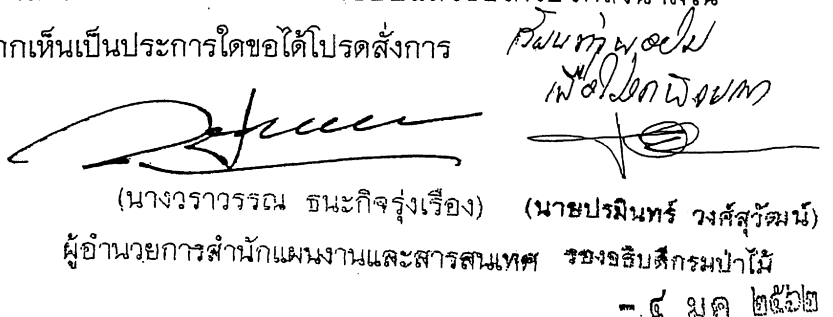 ากเห็นเป็นประการใดขอได้โปรดสั่งการ
เพื่อโปรดพิจารณา
(นางวราวรรณ ธนะกิจรุ่งเรือง) (นายปรมินทร์ วงศ์สุวัฒน์)
ผู้อำนวยการสำนักแผนงานและสารสนเทศ รองอธิบดีกรมป่าไม้
- ๔ มค ๒๕๖๒